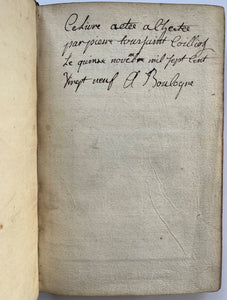 Ce Livre actée alhestée
par pierre toussaint Coulliet
Le quinse novebre mil sept Cent
Vingt neuf A Boulogne